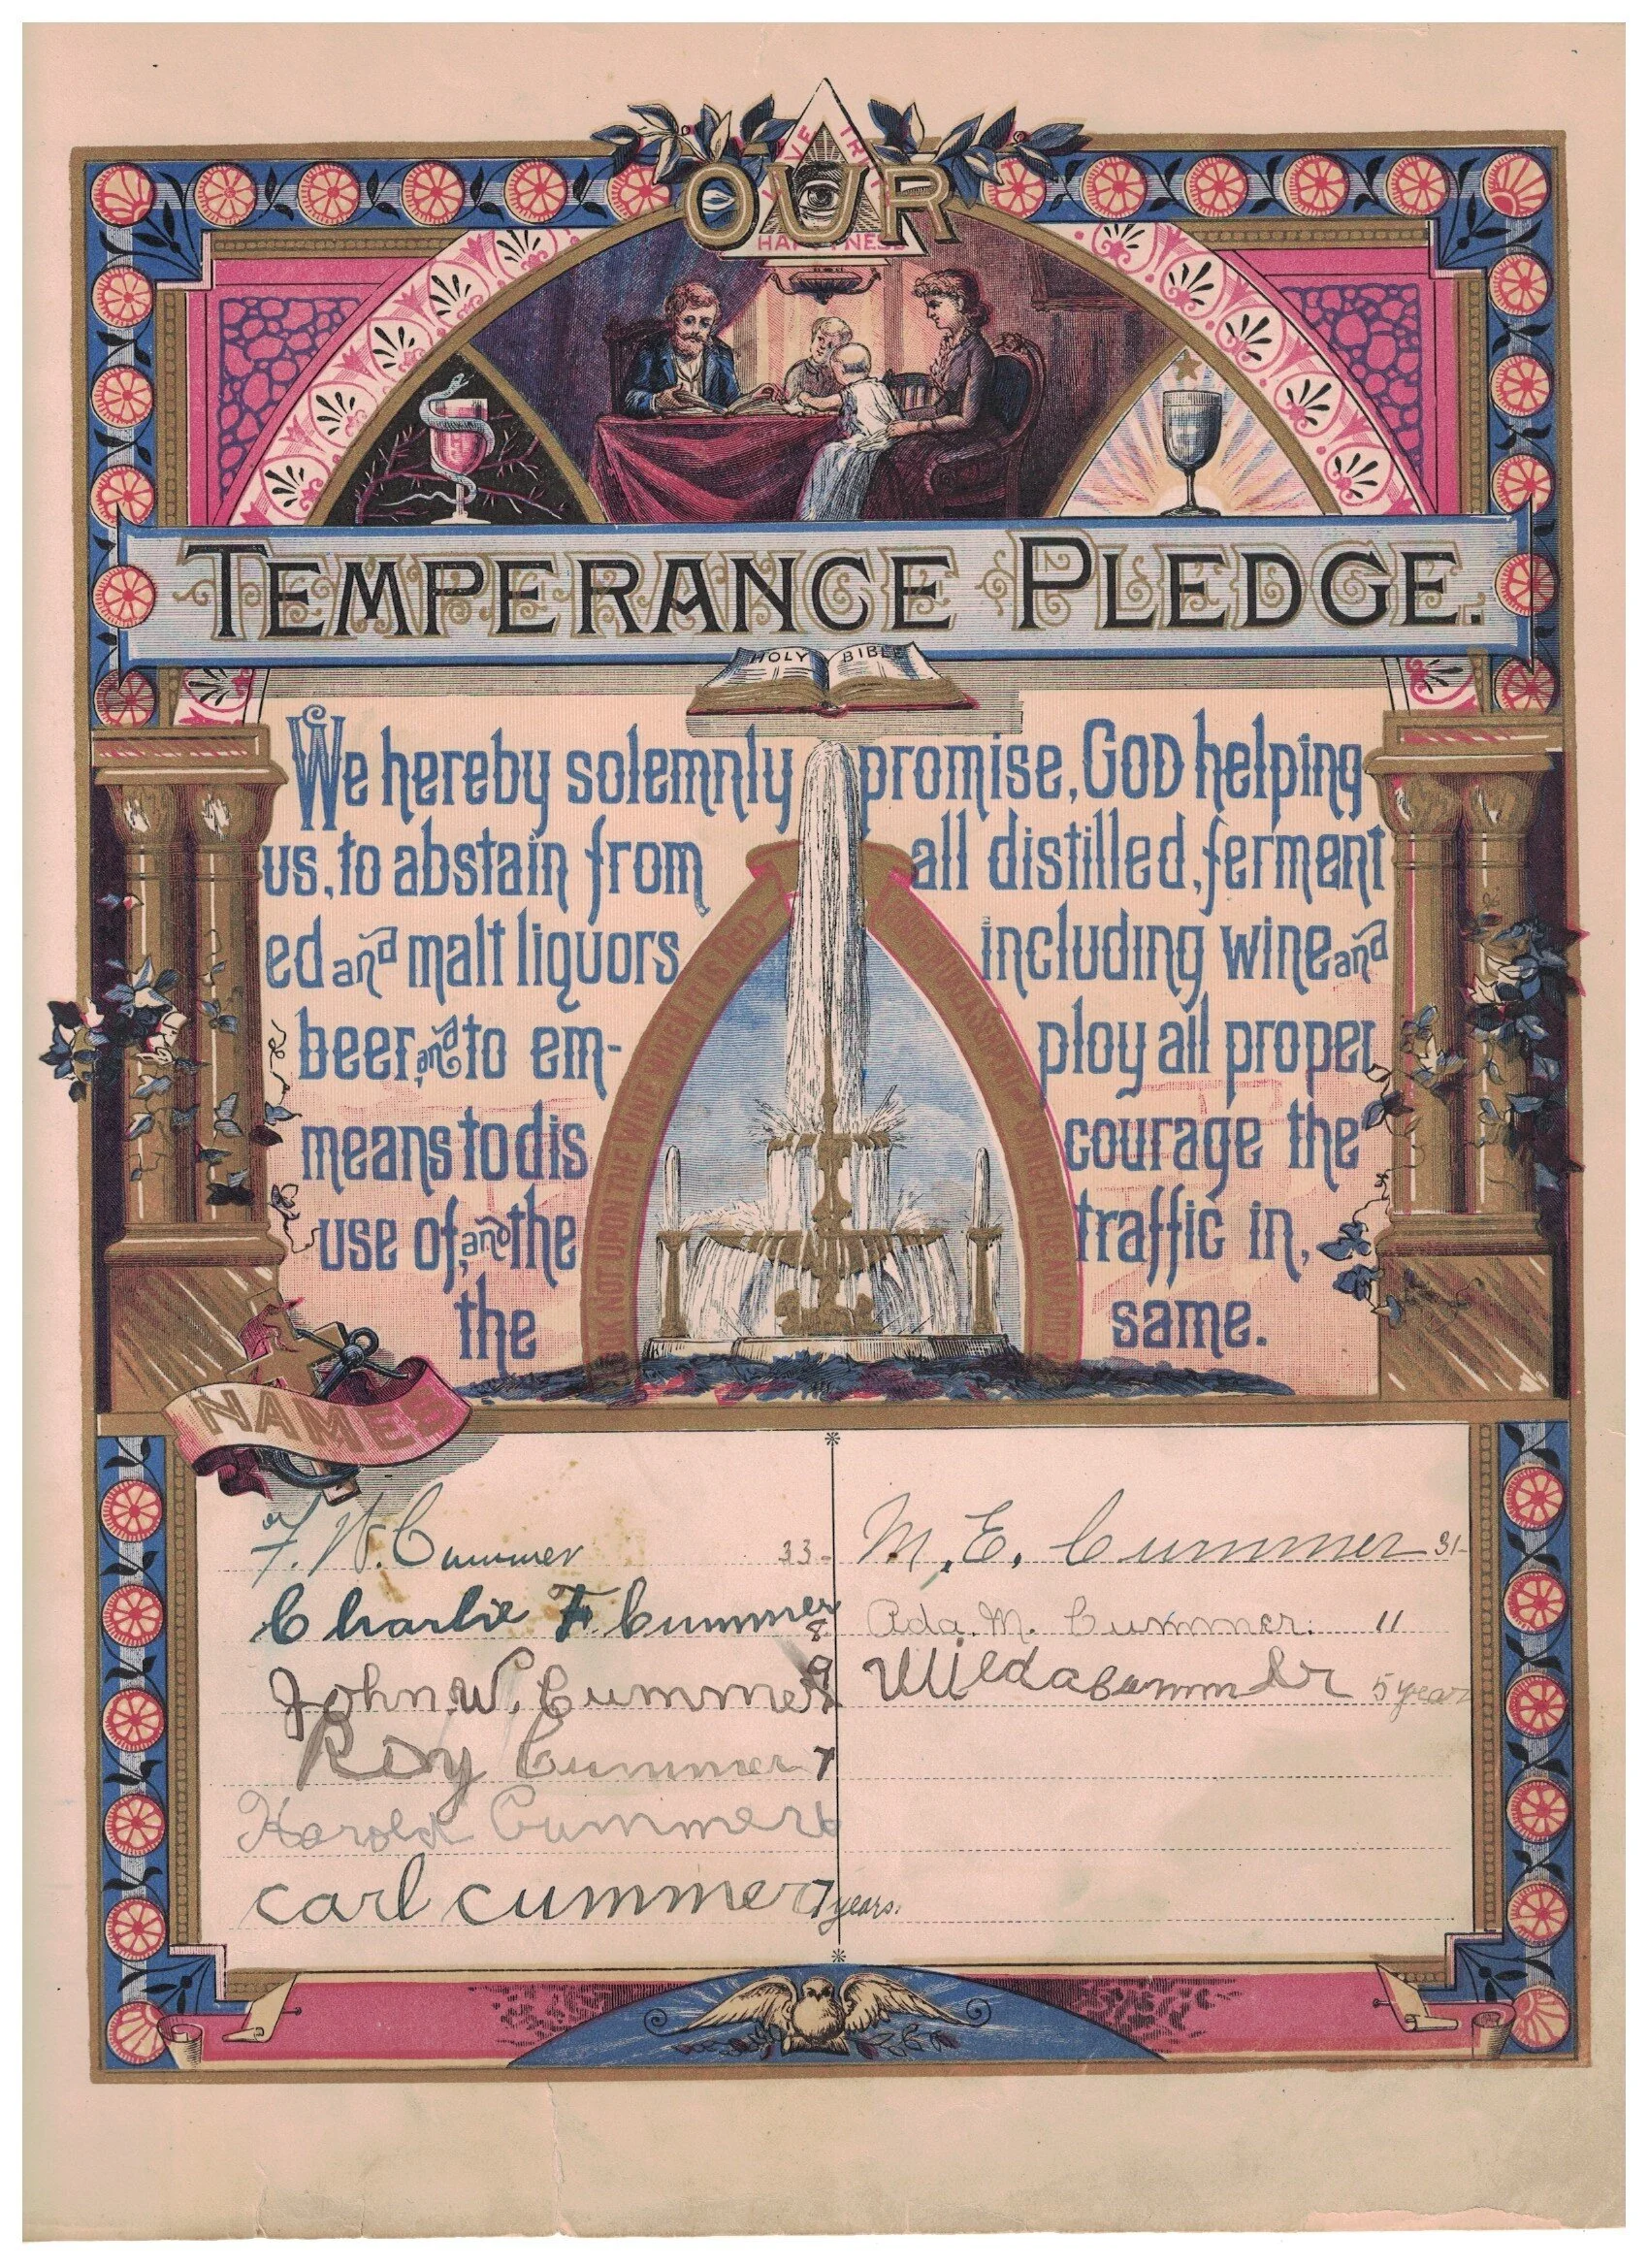 OUR
HAPPINESS
TEMPERANCE PLEDGE.
HOLY BIBLE
We hereby solemnly promise, GOD helping
us, to abstain from all distilled, ferment
ed and malt liquors including wine and
beer, and to em- ploy all proper
means to dis courage the
use of, and the traffic in,
the same.
LOOK NOT UPON THE WINE WHEN IT IS RED
NAMES
F. W. Cummer 33 M. E. Cummer 31
Charlie F. Cummer 8 Ada. M. Cummer. 11
John W. Cummer 9 Wilda Cummer 5 year
Roy Cummer 7
Harold Cummer
Carl Cummer 7 years.